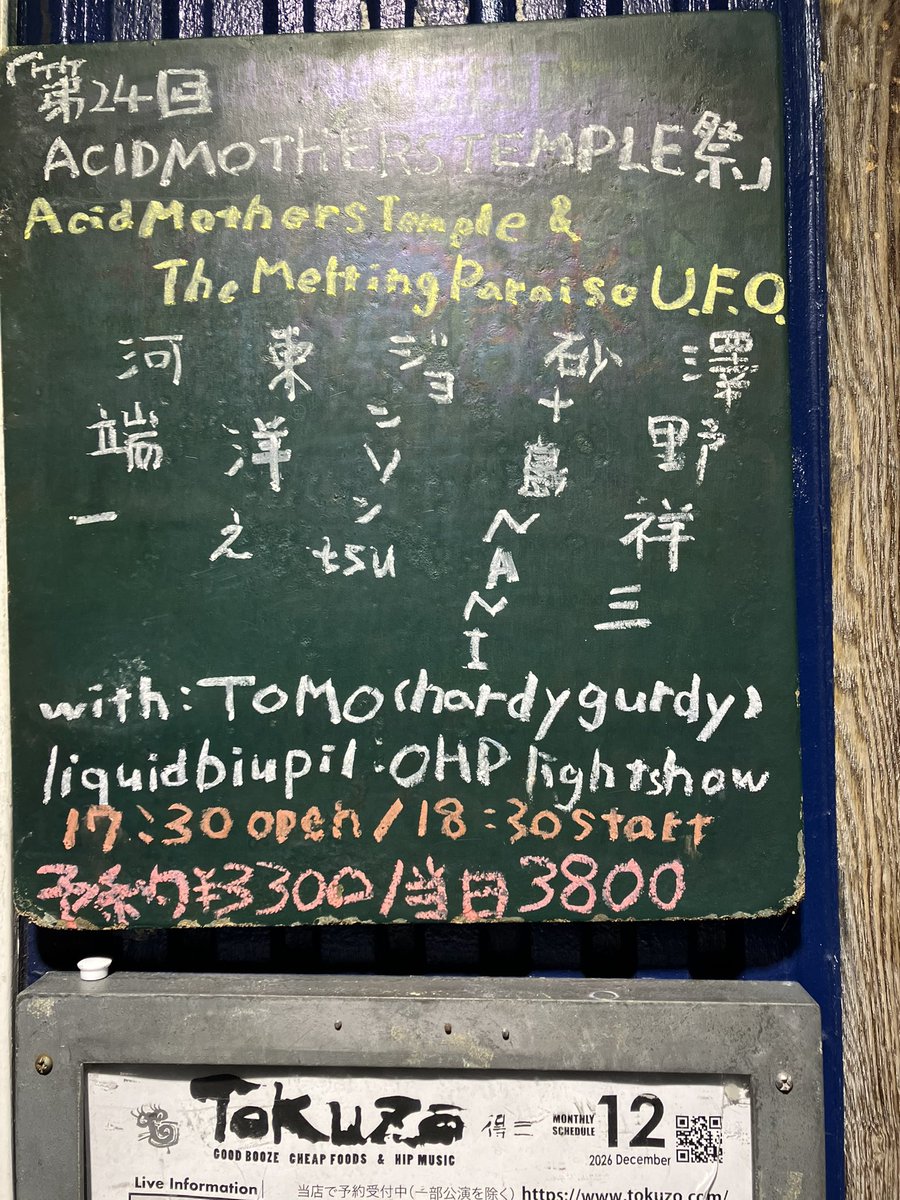 「第24回
ACID MOTHERS TEMPLE祭」
Acid Mothers Temple &
The Melting Paraiso U.F.O.
河端一
東洋え
ジョンソンtsu
砂十島NANI
澤野祥三
with:ToMo(hardygurdy)
liquidbiupil:OHP lightshow
17:30 open/18:30 start
予約¥3300/当日3800
TOKUZO 得三
GOOD BOOZE CHEAP FOODS & HIP MUSIC
MONTHLY SCHEDULE 12
2026 December
Live Information
当店で予約受付中(一部公演を除く) https://www.tokuzo.com/